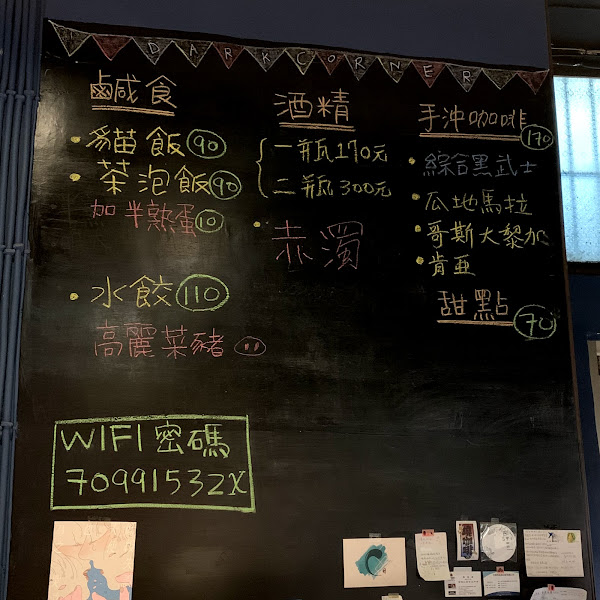 DARKCORNER
鹹食
貓飯 90
茶泡飯 90
加半熟蛋 10
水餃 110
高麗菜豬
WIFI 密碼
70991532X
酒精
一瓶170元
二瓶300元
赤濁
手沖咖啡 170
綜合黑武士
瓜地馬拉
哥斯大黎加
肯亞
甜點 70